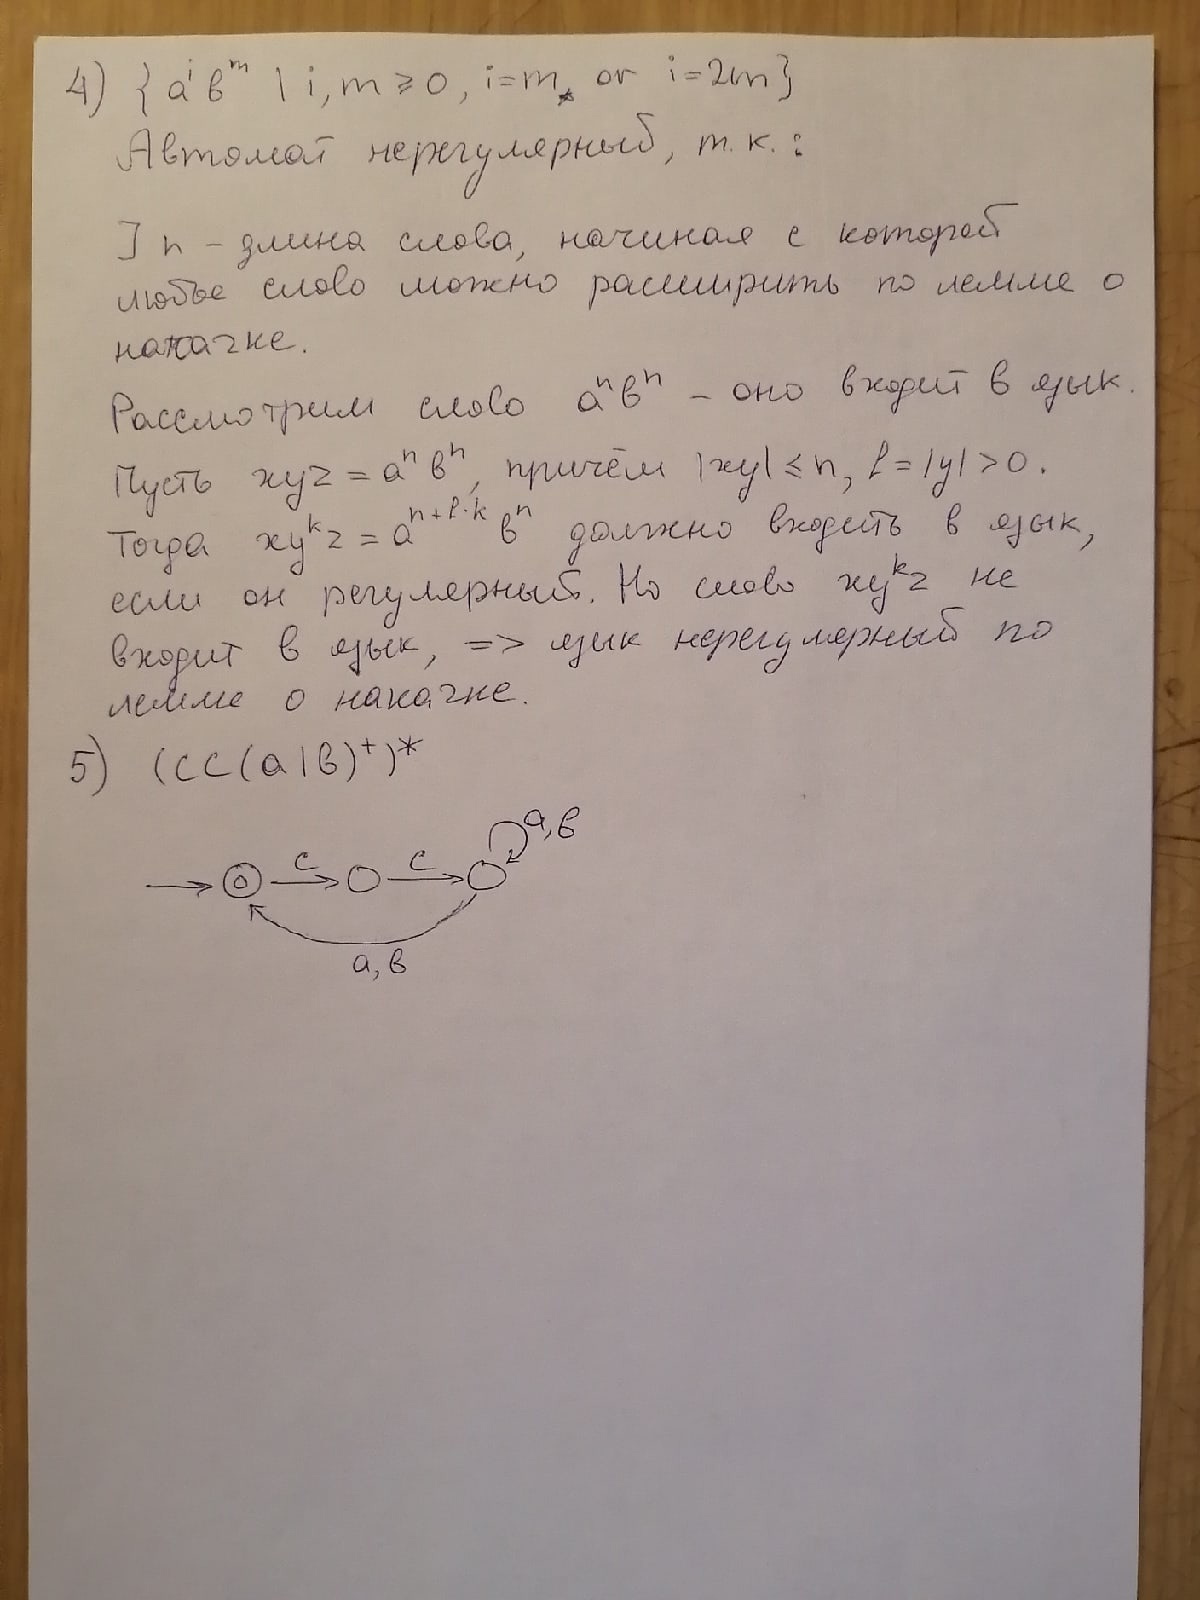 4) { aⁱ вᵐ | i, m ⩾ 0, i=m, or i=2m}
Автомат нерегулярный, т.к.:
] n – длина слова, начиная с которой
любое слово можно расширить по лемме о
накачке.
Рассмотрим слово aⁿвⁿ – оно входит в язык.
Пусть xyz = aⁿвⁿ, причём |xy| ≤ n, l = |y| > 0.
Тогда xyᵏz = aⁿ⁺ˡ·ᵏ вⁿ должно входить в язык,
если он регулярный. Но слово xyᵏz не
входит в язык, => язык нерегулярный по
лемме о накачке.
5) (cc(a|в)⁺)*
a,в
c c
a, в